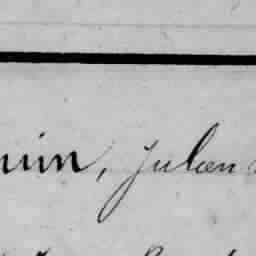 uin, Julien